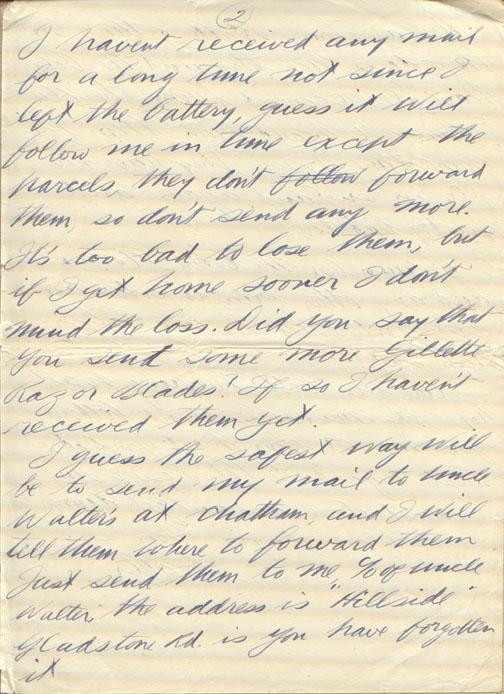 2
I havent received any mail
for a long time, not since I
left the battery, guess it will
follow me in time except the
parcels, they don't follow forward
them, so don't send any more.
It's too bad to lose them, but
if I get home sooner I don't
mind the loss. Did you say that
you send some more Gillette
Razor Blades! If so I haven't
received them yet.
I guess the safest way will
be to send my mail to uncle
Walter's at Chatham, and I will
tell them where to forward them
Just send them to me % of uncle
Walter, the address is "Hillside"
Gladstone Rd. is you have forgotten
it